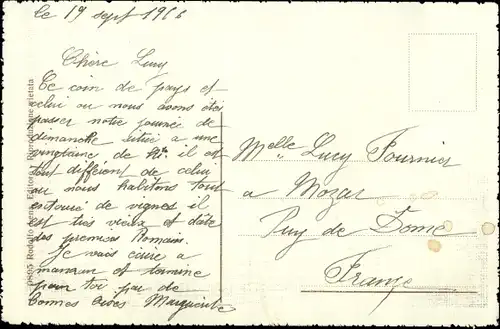 le 19 sept 19
Chère Lucy
Ce coin de pays et
celui ou nous avons étés
passer notre journée de
dimanche situé a une
vingtaine de Kts il est
tout différent de celui
ou nous habitons tout
entouré de vignes il
est très vieux et date
des premiers Romains.
Je vais écrire a
maman et termine
pour toi par de
bonnes bises Marguerite
Melle Lucy Fournier
a Mozac
Puy de Dome
France